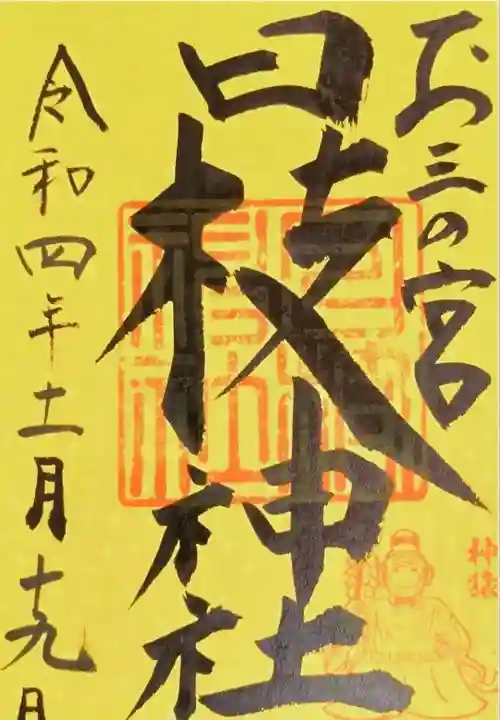 お三の宮
日枝神社
令和四年十一月十九日
神猿